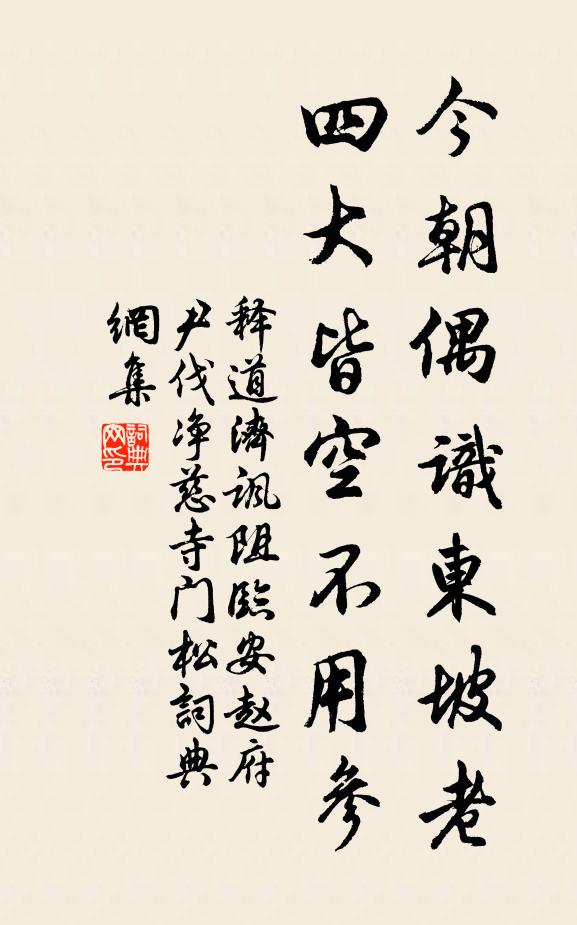 今朝偶識東坡老
四大皆空不用參
释道濟諷阻臨安赵府
尹伐净慈寺门松詞典
網集
詞典
网印